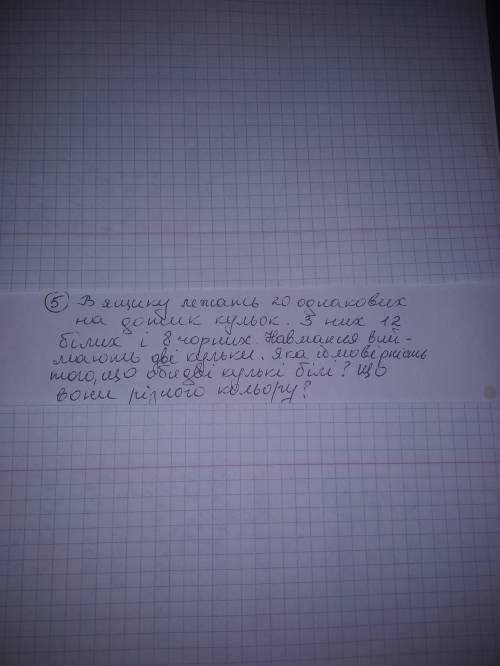 5 В ящику лежать 20 однакових
на дотик кульок. З них 12
білих і 8 чорних. Навмання вий-
мають дві кульки. Яка ймовірність
того, що обидві кулькі білі? Що
вони різного кольору?